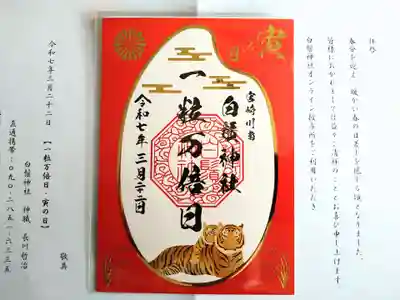 拝啓
春分を迎え、暖かい春の日差しを感じる頃となりました。
皆様におかれましては益々ご清祥のこととお喜び申し上げます
白髭神社オンライン授与所をご利用いただき
寅
日
宮崎川南
白髭神社
一粒万倍日
令和七年三月二十二日
敬具
令和七年三月二十二日 【一粒万倍日・寅の日】
白髭神社 神職 長川哲治
直通携帯:090-285-6335